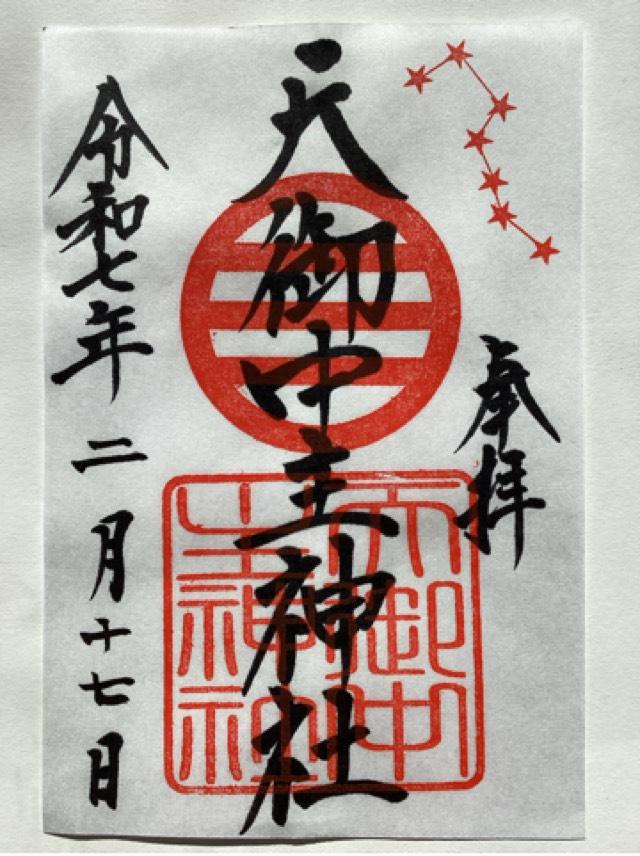 奉拝
天御中主神社
天御中
主神社
令和七年二月十七日